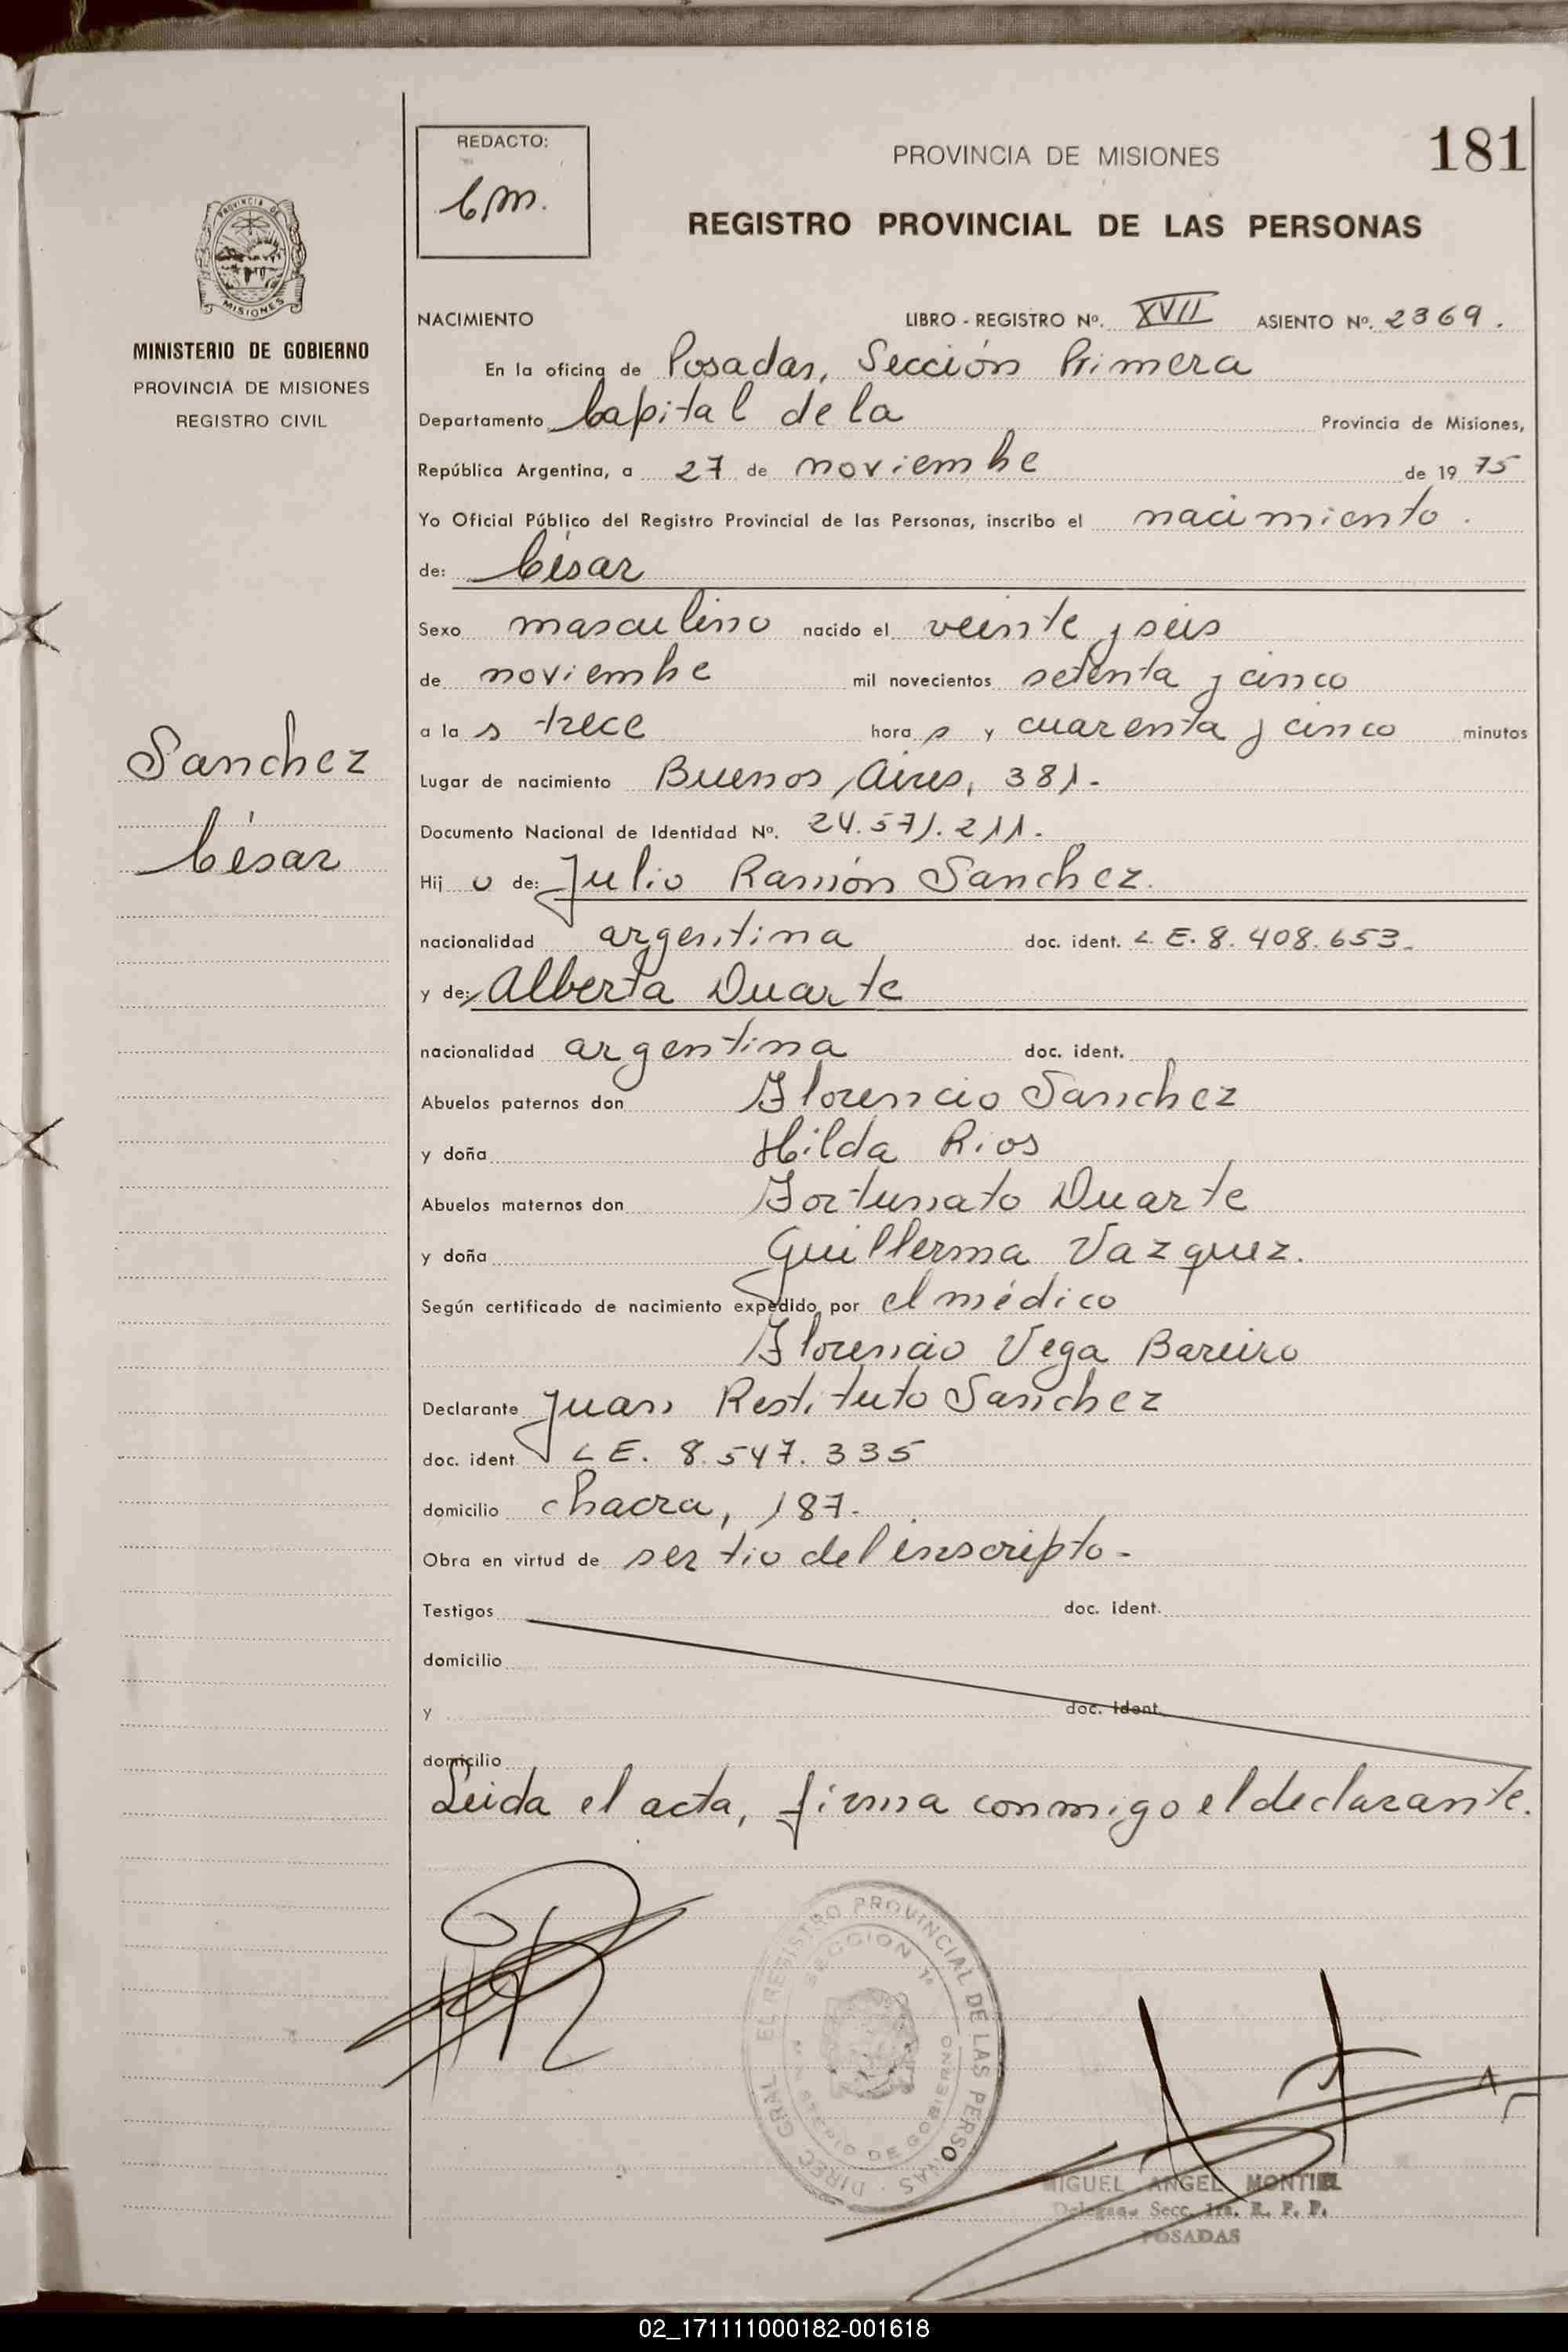 REDACTO:
C.M.
PROVINCIA DE MISIONES
181
REGISTRO PROVINCIAL DE LAS PERSONAS
PROVINCIA DE
MISIONES
MINISTERIO DE GOBIERNO
PROVINCIA DE MISIONES
REGISTRO CIVIL
Sanchez
César
NACIMIENTO LIBRO - REGISTRO Nº. XVII ASIENTO Nº. 2369.
En la oficina de Posadas, Sección Primera
Departamento Capital de la Provincia de Misiones,
República Argentina, a 27 de noviembre de 1975
Yo Oficial Público del Registro Provincial de las Personas, inscribo el nacimiento.
de: César
Sexo masculino nacido el veinte y seis
de noviembre mil novecientos setenta y cinco
a las trece horas y cuarenta y cinco minutos
Lugar de nacimiento Buenos Aires, 381.-
Documento Nacional de Identidad Nº. 24.571.211.-
Hijo de: Julio Ramón Sanchez.
nacionalidad argentina doc. ident. L.E. 8.408.653.-
y de: Alberta Duarte
nacionalidad argentina doc. ident.
Abuelos paternos don Florencio Sanchez
y doña Hilda Rios
Abuelos maternos don Fortunato Duarte
y doña Guillerma Vazquez.
Según certificado de nacimiento expedido por el médico
Florencio Vega Bareiro
Declarante Juan Restituto Sanchez
doc. ident L.E. 8.547.335
domicilio chacra, 187.-
Obra en virtud de ser tio del inscripto.-
Testigos doc. ident.
domicilio
y doc. ident.
domicilio
Leida el acta, firma conmigo el declarante.
DIREC. GRAL. EL REGISTRO PROVINCIAL DE LAS PERSONAS
SECCION 1ª
MINISTERIO DE GOBIERNO
MIGUEL ANGEL MONTIEL
Delegado Secc. 1ra. R. P. P.
POSADAS
02_171111000182-001618